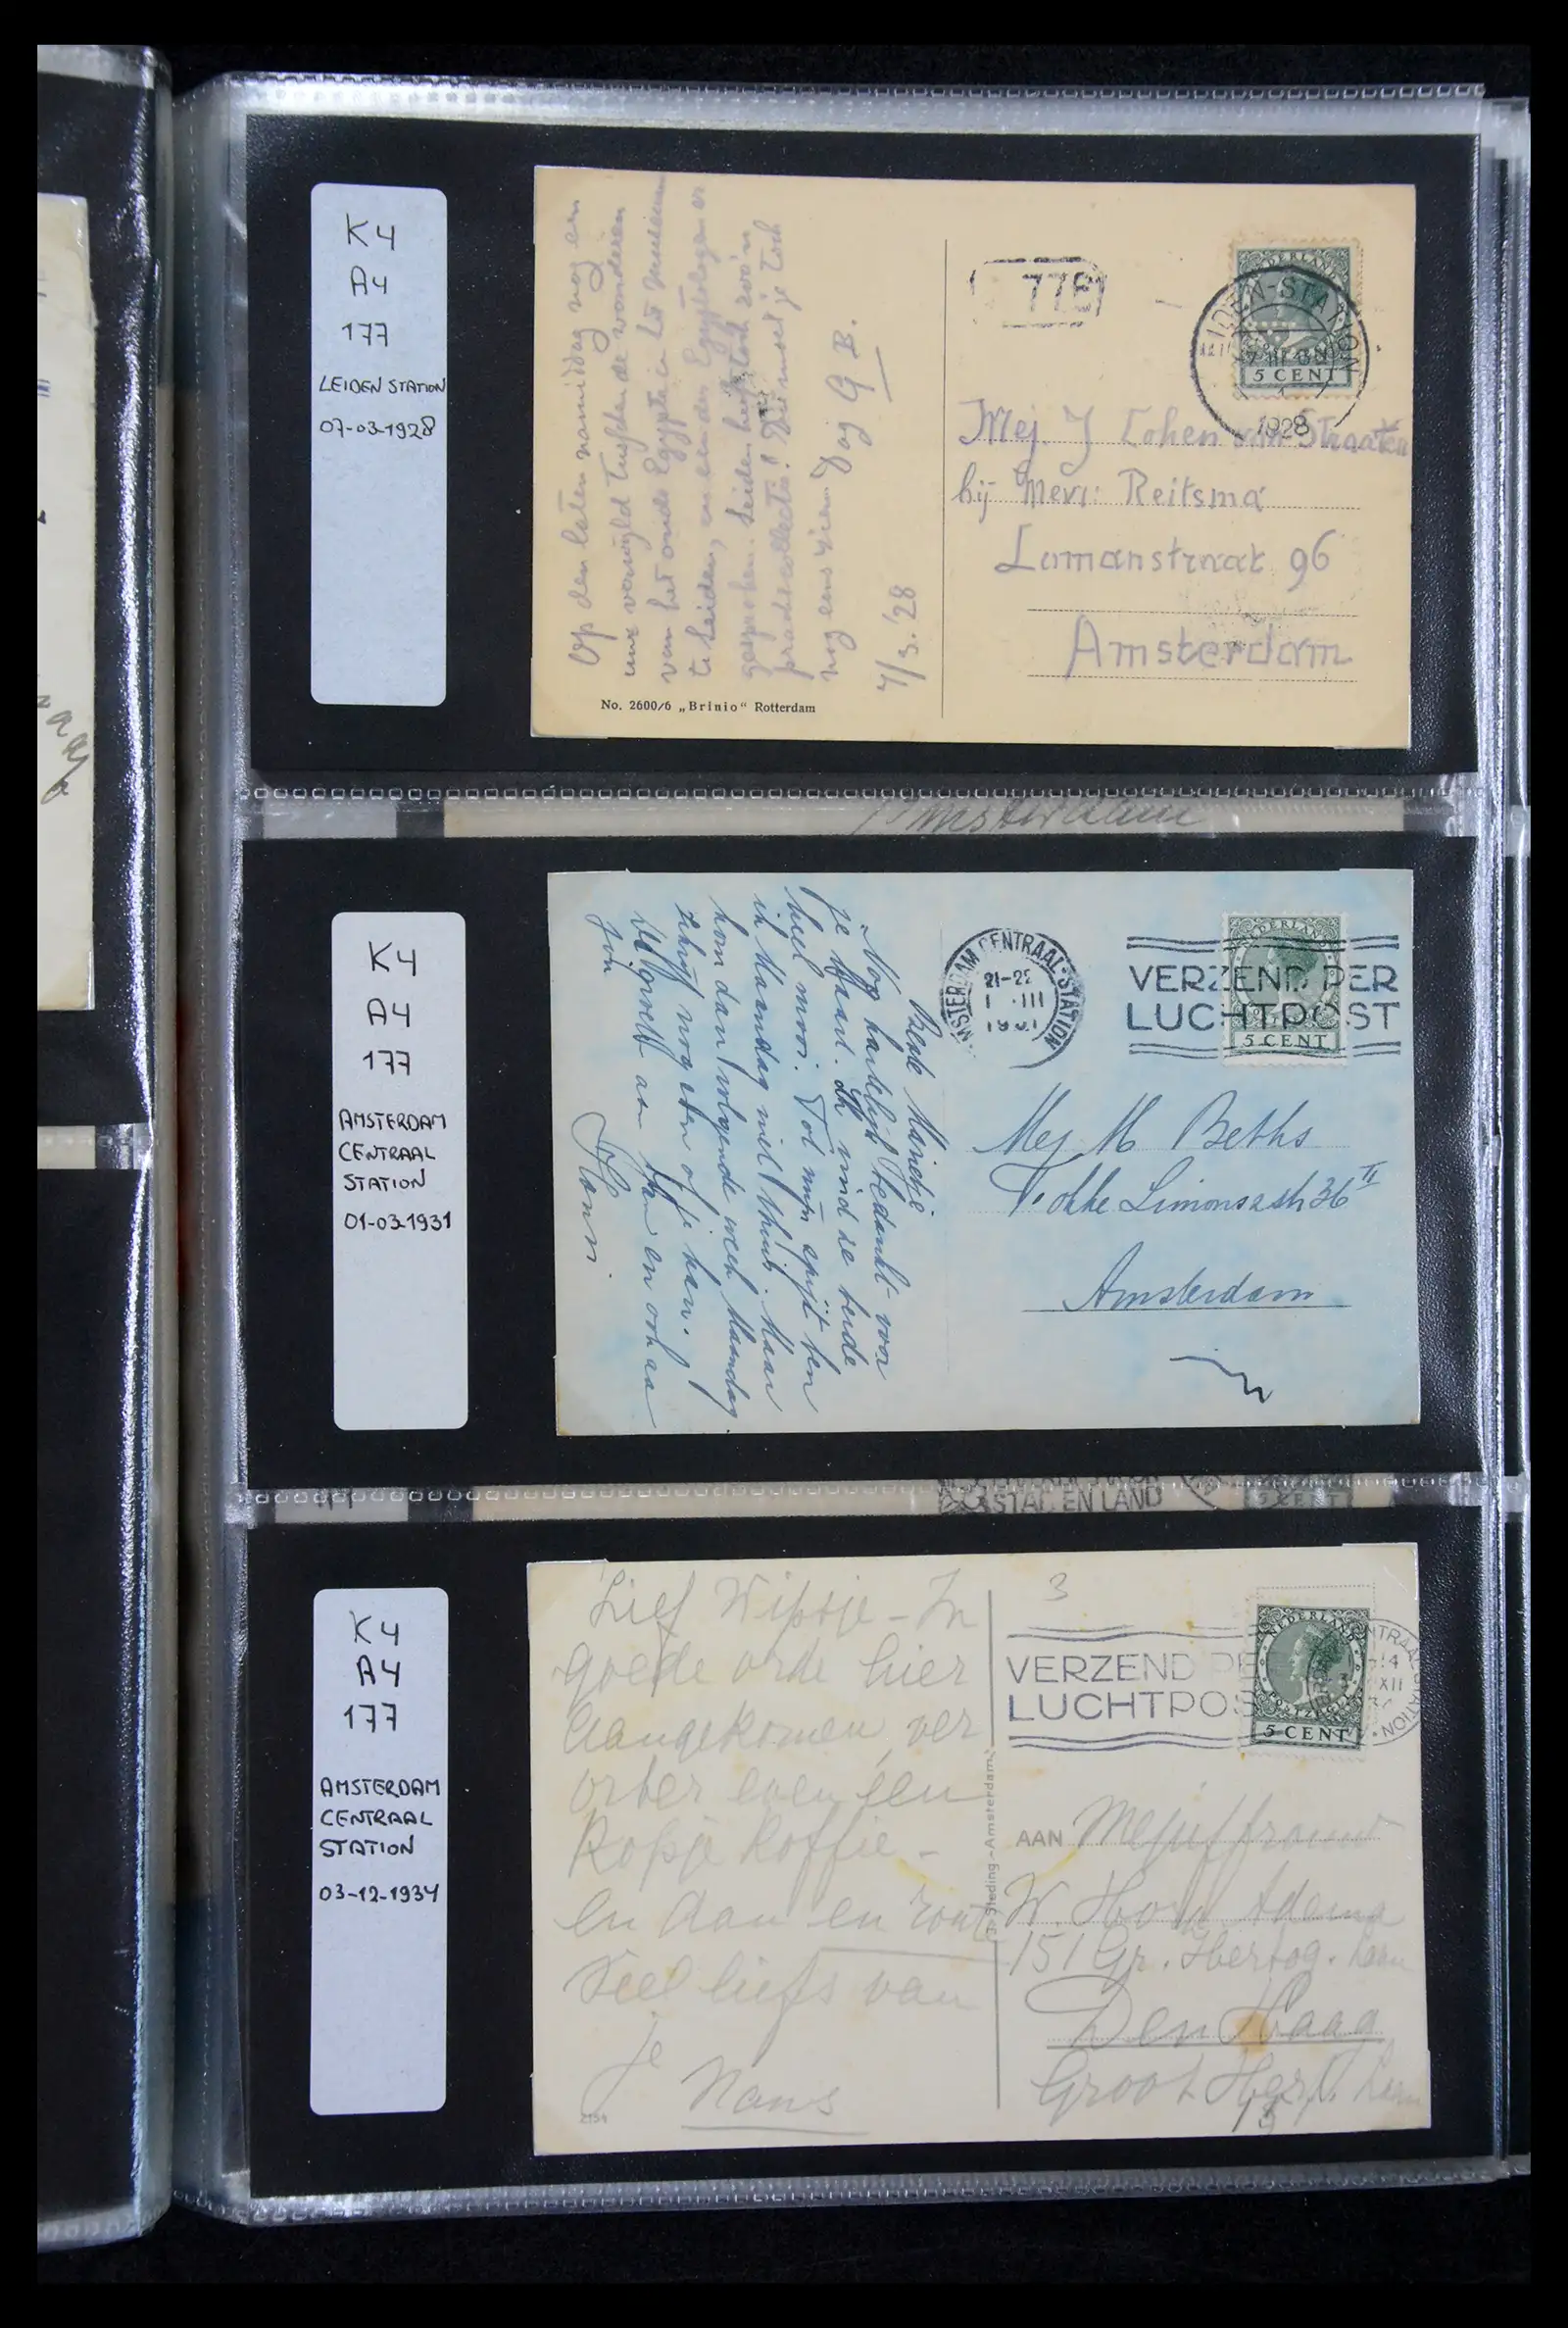 K4
A4
177
LEIDEN STATION
07-03-1928
Op den laten namiddag nog een
uur verwijld tusschen de wonderen
van het oude Egypte in het museum
te Leiden, en een der Egyptologen er
gesproken. Leiden heeft toch zoo'n
prachtcollectie! Die moet je toch
nog eens zien. Dag G B.
7/3.'28
No. 2600/6 „Brinio“ Rotterdam
778
LEIDEN-STATION
7 III
1928
NEDERLAND
5 CENT
Mej. J Cohen van Straaten
bij Mevr: Reitsma
Lomanstraat 96
Amsterdam
Amsterdam
K4
A4
177
AMSTERDAM
CENTRAAL
STATION
01-03-1931
Nog hartelijk bedankt voor
je kaart. Ik vind ze beide
heel mooi. Tot mijn spijt ben
ik Maandag niet thuis. Maar
kom dan volgende week Maandag
schrijf nog even of je kan.
De groeten aan
Jonni
AMSTERDAM CENTRAAL-STATION
21-22
1 III
1931
VERZEND PER
LUCHTPOST
NEDERLAND
5 CENT
Mej M Beths
Fokke Simonszstr 36 II
Amsterdam
STAD EN LAND
5 CENT
K4
A4
177
AMSTERDAM
CENTRAAL
STATION
03-12-1934
Lief Wipsje - In
goede orde hier
aangekomen, ver
orber even een
kopje koffie -
en dan en route
Veel liefs van
je
Nans
2154
J. Sleding.-Amsterdam.
3
VERZEND PE
LUCHTPOS
NEDERLAND
POSTZEGEL
5 CENT
CENTRAAL STATION
XII
AAN Mejuffrouw
W. Hora Adema
151 Gr. Hertog. laan
Den Haag
Groot Hert. laan